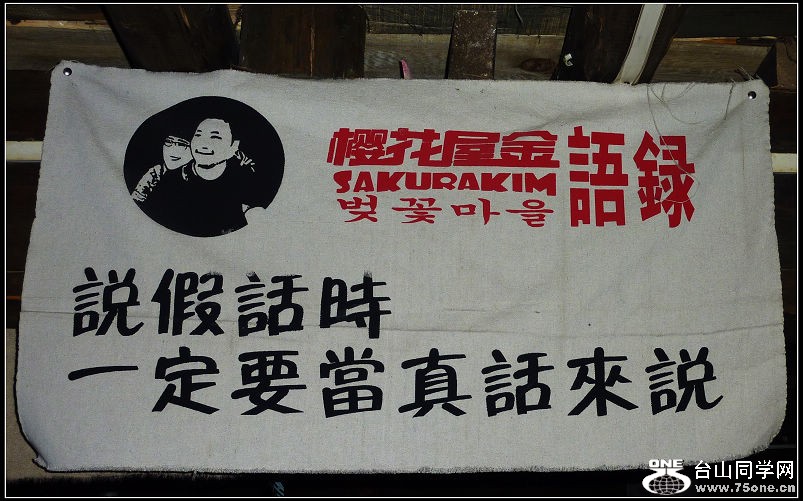 樱花屋金
SAKURAKIM
벚꽃마을
語録
説假話時
一定要當真話來説
ONE
台山同学网
www.75one.cn